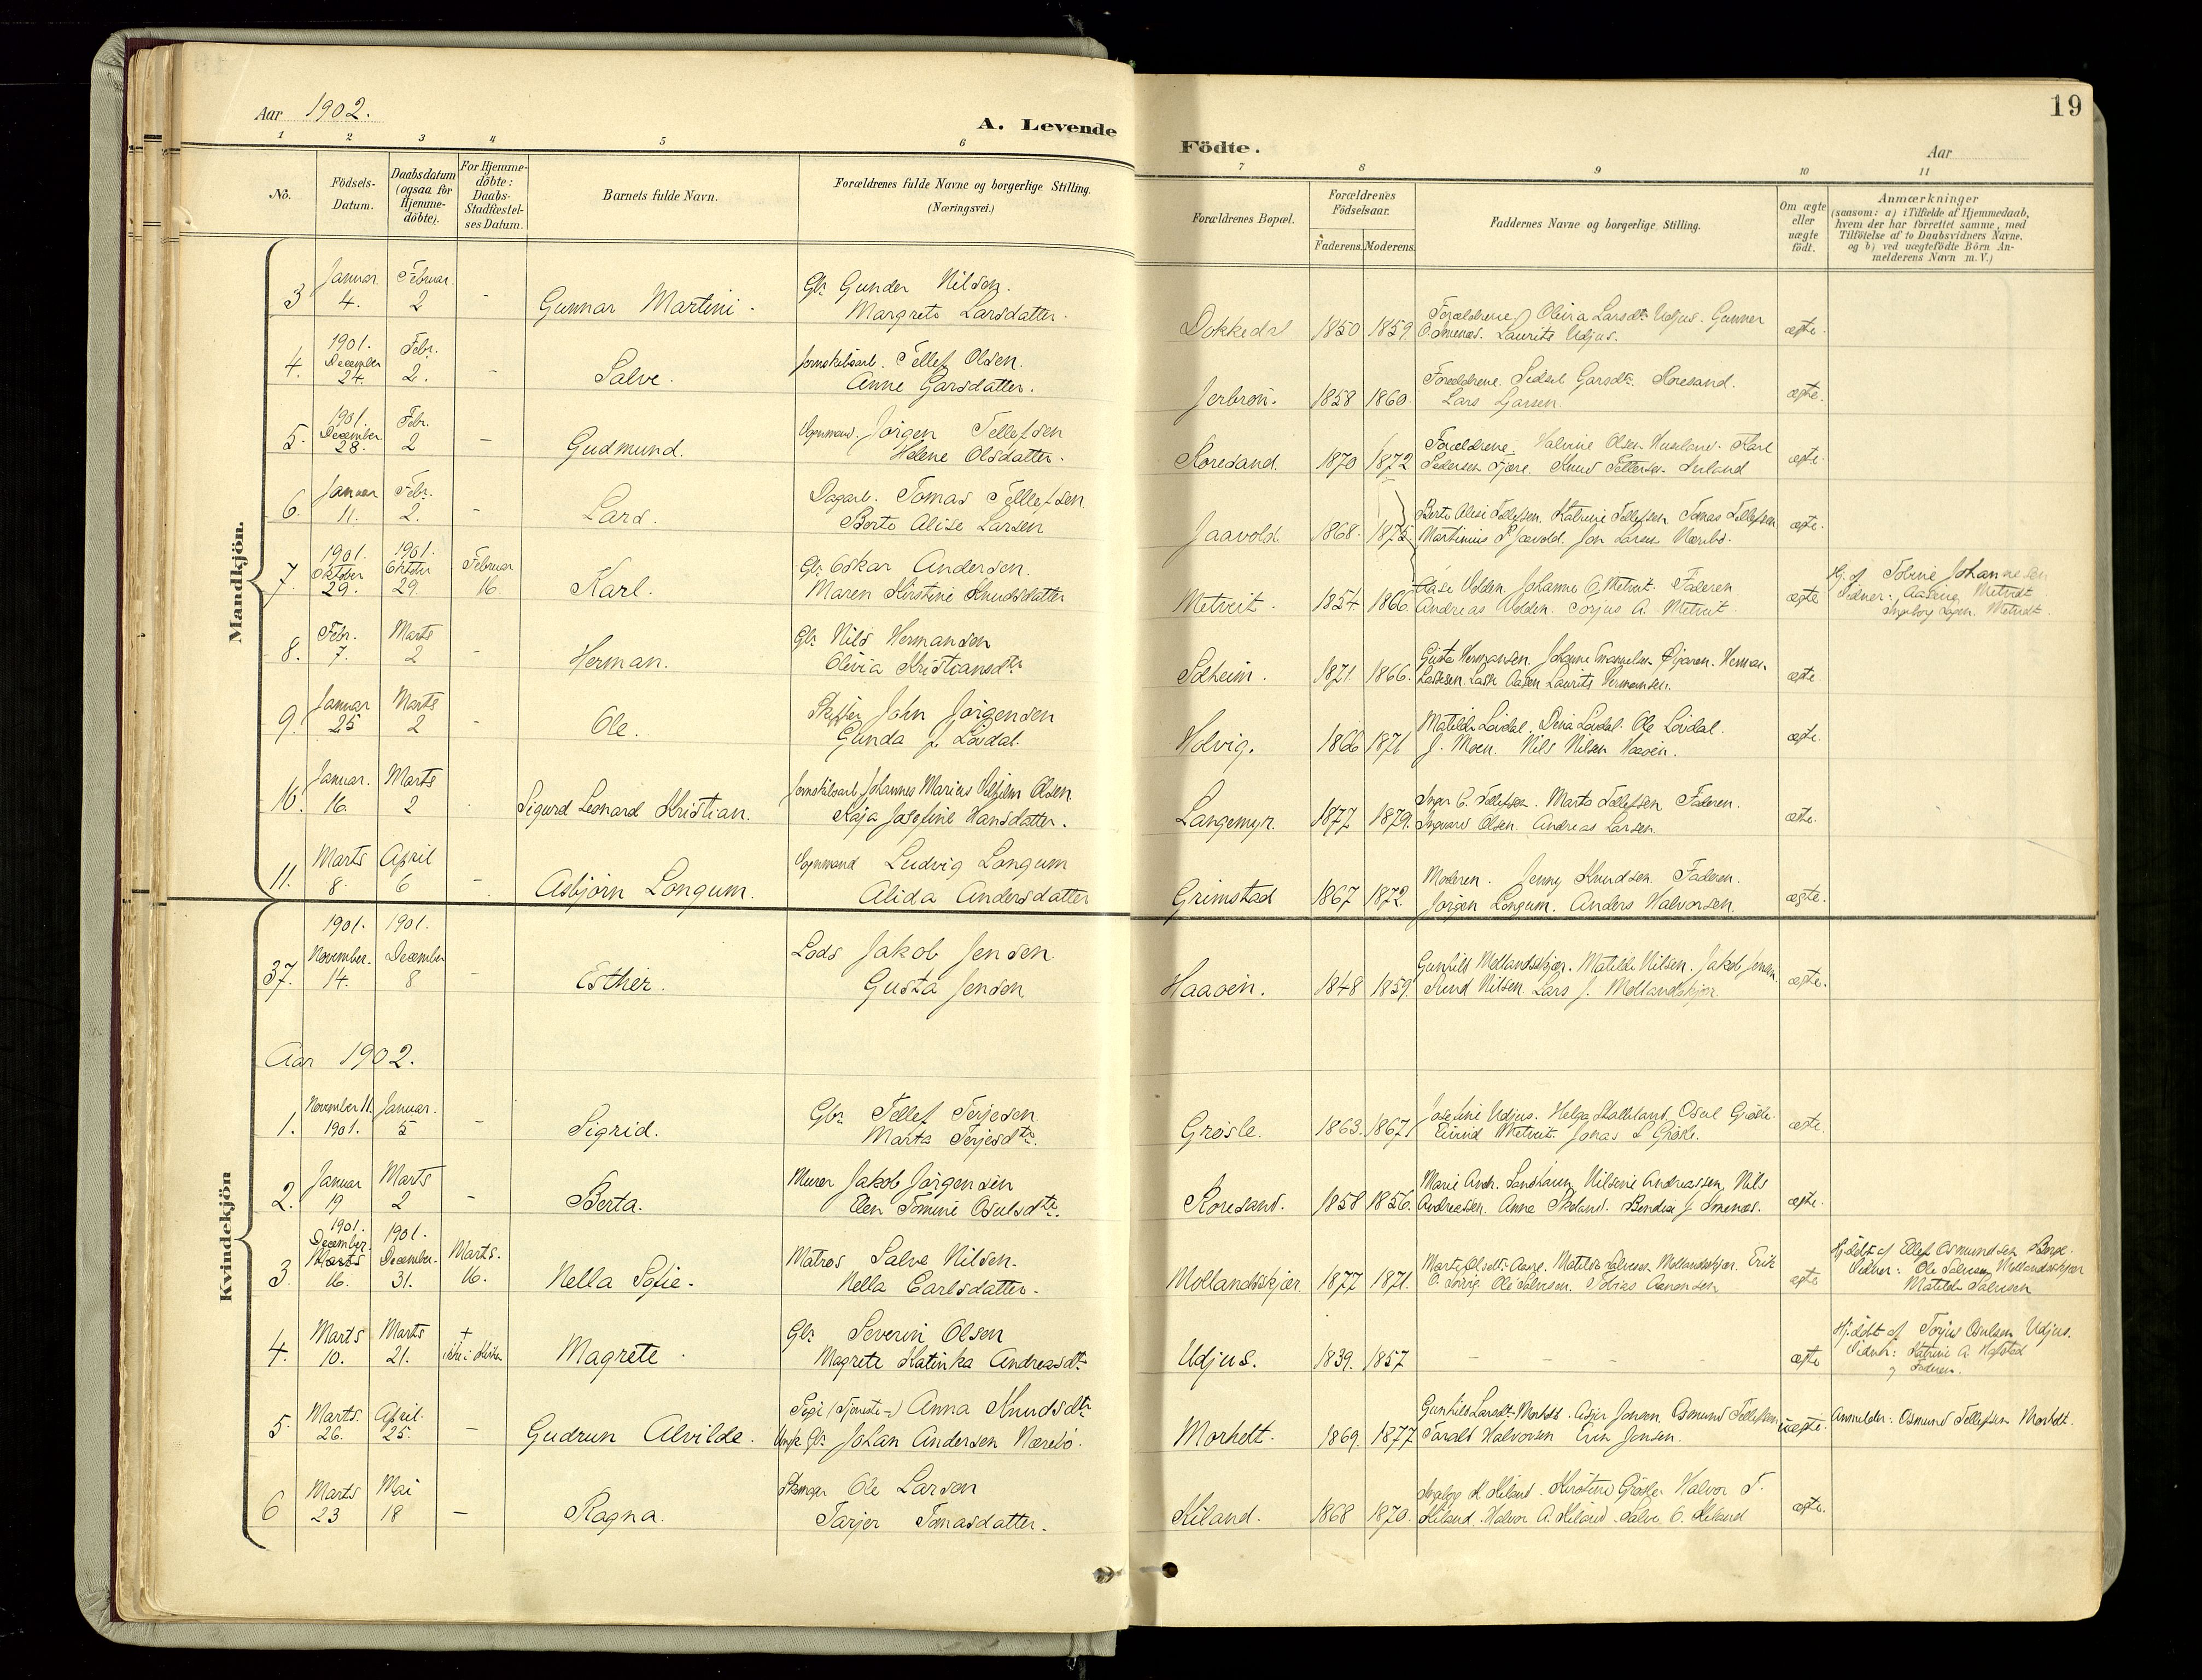 Aar 1902.
A. Levende
Födte.
19
Aar
1 2 3 4 5 6 7 8 9 10 11
No.
Födsels-
Datum.
Daabsdatum
(ogsaa for
Hjemme-
döbte).
For Hjemme-
döbte:
Daabs-
Stadfæstel-
ses Datum.
Barnets fulde Navn.
Forældrenes fulde Navne og borgerlige Stilling.
(Næringsvei.)
Forældrenes Bopæl.
Forældrenes
Födselsaar.
Faderens. Moderens.
Faddernes Navne og borgerlige Stilling.
Om ægte
eller
uægte
födt.
Anmærkninger
(saasom: a) i Tilfælde af Hjemmedaab,
hvem der har forrettet samme, med
Tilföielse af to Daabsvidners Navne,
og b) ved uægtefödte Börn An-
melderens Navn m. V.)
Mandkjön.
Januar Februar. Gbr. Gunder Nilsen.
3 4. 2 - Gunnar Martini. Margrete Larsdatter.
Dokkedal 1850 1859. Forældrene, Olivia Larsdt. Udjus. Gunner
Laurits Udjus. ægte.
1901. December Febr. Tellef Olsen.
4. 24. 2. - Salve. Anne Garsdatter.
1858 1860. Forældrene. Garsdtr. Roresand.
Lars Garsen. ægte.
1901. December Febr. Jörgen Tellefsen
5. 28. 2 - Gudmund. Helene Olsdatter.
Roresand. 1870 1872 Forældrene. Olsen Karl
Pedersen Fjære. Knud ægte.
Januar Febr. Dagarb. Tomas Tellefsen
6. 11. 2. - Lars. Berte Alise Larsen
Jaavold 1868. 1875. Berte Alise Tellefsen. Katrine Tellefsen Tomas Tellefsen
Martinius Jaavold. Jon Larsen ægte.
1901. Oktober 1901. Oktober Februar Gbr. Oskar Andersen.
7. 29. 29. 16. Karl. Maren Kirstine Knudsdatter
Metveit. 1854 1866 Aase Volden. Johanne Metveit. Faderen
Andreas Volden. Torjus A. Metveit. ægte
Hj. af Tobine Johannesen
Vidner: Metveit
Ingeborg Metveit.
Febr. Marts Gbr. Nils Hermansen
8. 7. 2 - Herman. Olivia Kristiansdtr.
Solheim. 1871 1866. Gusta Hermansen. Johanne Herman
Lassesen. Laurits Hermansen. ægte.
Januar Marts Skipper John Jörgensen
9. 25 2 - Ole. Gunda J. Lövdal.
Holvig. 1866 1871 Matilde Lövdal. Dina Lövdal. Ole Lövdal.
J. Moen. Nils Nilsen Haaøen. ægte.
Januar. Marts Johannes Marius Vilhjelm Olsen
10. 16. 2 Sigurd Leonard Kristian. Kaja Josefine Hansdatter.
Langemyr. 1877 1879. Inger C. Tellefsen. Marta Tellefsen Faderen.
Ingvard Olsen. Andreas Larsen. ægte.
Marts April Vognmand Ludvig Longum
11. 8. 6 - Asbjörn Longum. Alida Andersdatter
Grimstad 1867 1872. Moderen. Jenny Knudsen. Faderen.
Jörgen Longum. Anders Halvorsen. ægte.
Kvindekjön
1901. November. 1901. December Lods Jakob Jensen
37. 14. 8 - Esther. Gusta Jensen
Haaøen. 1848 1859. Gunhild Mollandsskjær. Matilde Nilsen. Jakob Jensen.
Nilsen. Lars J. Mollandskjær. ægte.
Aar 1902.
November 11. Januar. Gbr. Tellef Terjesen
1. 1901. 5 - Sigrid. Marta Terjesdtr.
Grösle. 1863. 1867 Josefine Udjus. Helga Osul Grösle.
Eivind Metveit. Jonas Grösle. ægte.
Januar Marts Murer Jakob Jörgensen
2. 19 2 - Berta. Elen Tomine Osulsdtr.
Roresand. 1858 1856. Marie Andr. Nilsine Andreassen, Nils
Andreassen. Anne Bendix J. ægte.
1901. December 1901. December. Marts. Matros Salve Nilsen.
3. 16. 31. 16. Nella Sofie. Nella Carlsdatter.
Mollandsskjær. 1877 1871. Marte Olsdt. Matilde Salvesen Mollandsskjær. Erik
Ole Salvesen. Tobias Aanonsen ægte
Hj.døbt af Ellef Osmundsen
Vidner: Ole Salvesen Mollandsskjær
Matilde Salvesen
Marts Marts + Gbr. Severin Olsen
4. 10. 21. ikke i Kirken Magrete. Magrete Katinka Andreasdt.
Udjus. 1839. 1857 - - - - - ægte
Hj.döbt af Torjus Osulsen Udjus.
Vidner: Katrine A. Hafstad
og Faderen.
Marts. April. Pige (Tjeneste-) Anna Knudsdtr
5 26. 25. - Gudrun Alvilde. Ungk. Gbr. Johan Andersen Nærebö.
Morholt. 1869. 1877 Gunhild Larsdt. Morholt. Jensen. Osmund Tellefsen
Taralt Halvorsen Jensen. uægte.
Anmelder: Osmund Tellefsen Morholt.
Marts Mai Ole Larsen
6 23 18 - Ragna. Tarjer Tomasdatter.
Kiland. 1868 1870. Kiland. Kirstine Grösle. Halvor T.
Kiland. Halvor A. Kiland. Salve O. Kiland ægte.